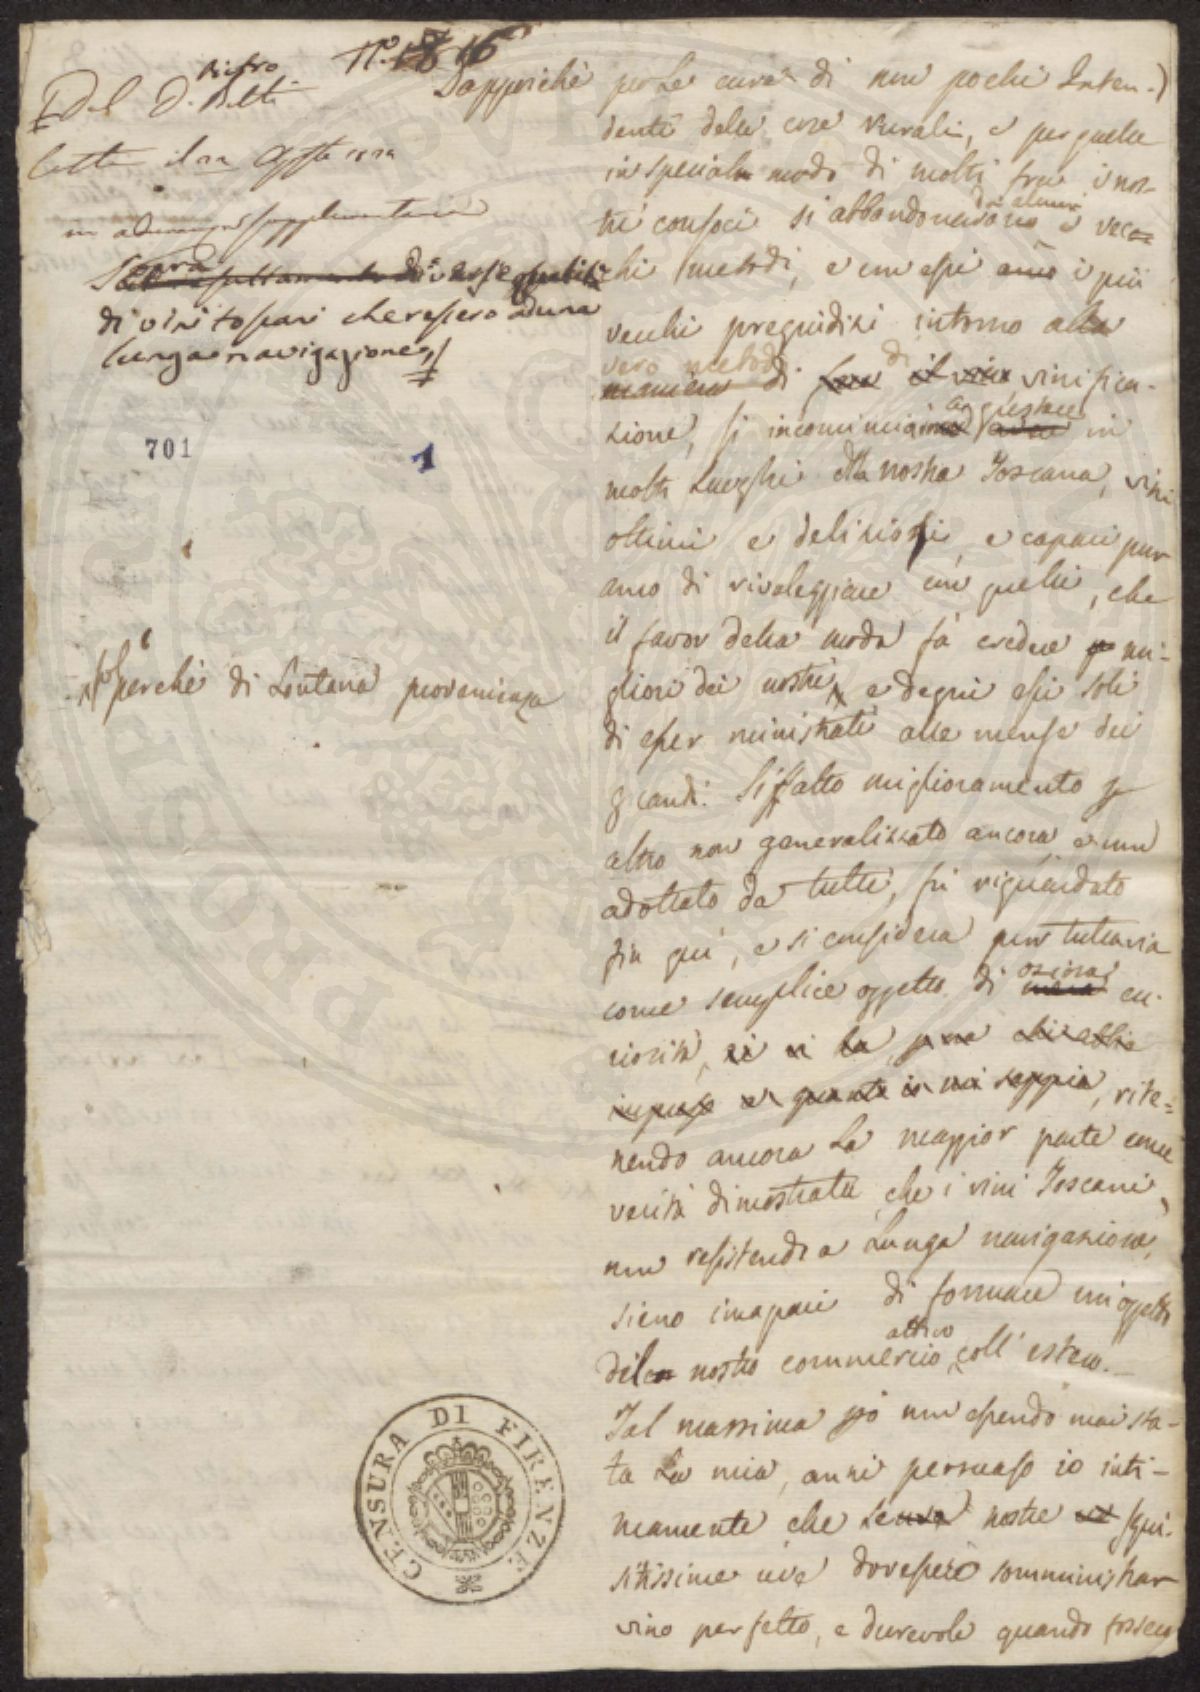 N.° 16
Del D. Pietro Betti
Letta il
in adunanza supplementaria
Sopra
di vini toscani che ressero ad una
lunga navigazione
701
1
perchè di Lontana provenienza
Dappoichè per Le cure di non pochi Inten-
denti delle cose rurali, e per quelle
in special modo di molti fra i nos-
tri consoci si abbandonarono da alcuni i vec
chi metodi, e con essi i più
vecchi pregiudizi intorno al
vero metodo di vinifica-
zione, si incominciarono a gustare in
molti Luoghi della nostra Toscana, vini
ottimi e deliziosi, e capaci pur
anco di rivaleggiare con quelli, che
il favor della moda fà credere mi-
gliori dei nostri, e degni essi soli
di esser ministrati alle mense dei
grandi. Siffatto miglioramento per
altro non generalizzato ancora, e non
adottato da tutti, fù riguardato
fin quì, e si considera pur tuttavia
come semplice oggetto di oziosa cu-
riosità, si vi ha pure chi abbia
, rite-
nendo ancora La maggior parte come
verità dimostrata che i vini Toscani,
non resistendo a Lunga navigazione,
sieno incapaci di formare un oggetto
del nostro commercio attivo coll' estero.
Tal massima però non essendo mai sta-
ta La mia, anzi persuaso io inti-
mamente che le nostre squi-
sitissime uve dovessero somministrar
vino perfetto, e durevole quando fossero
CENSURA DI FIRENZE